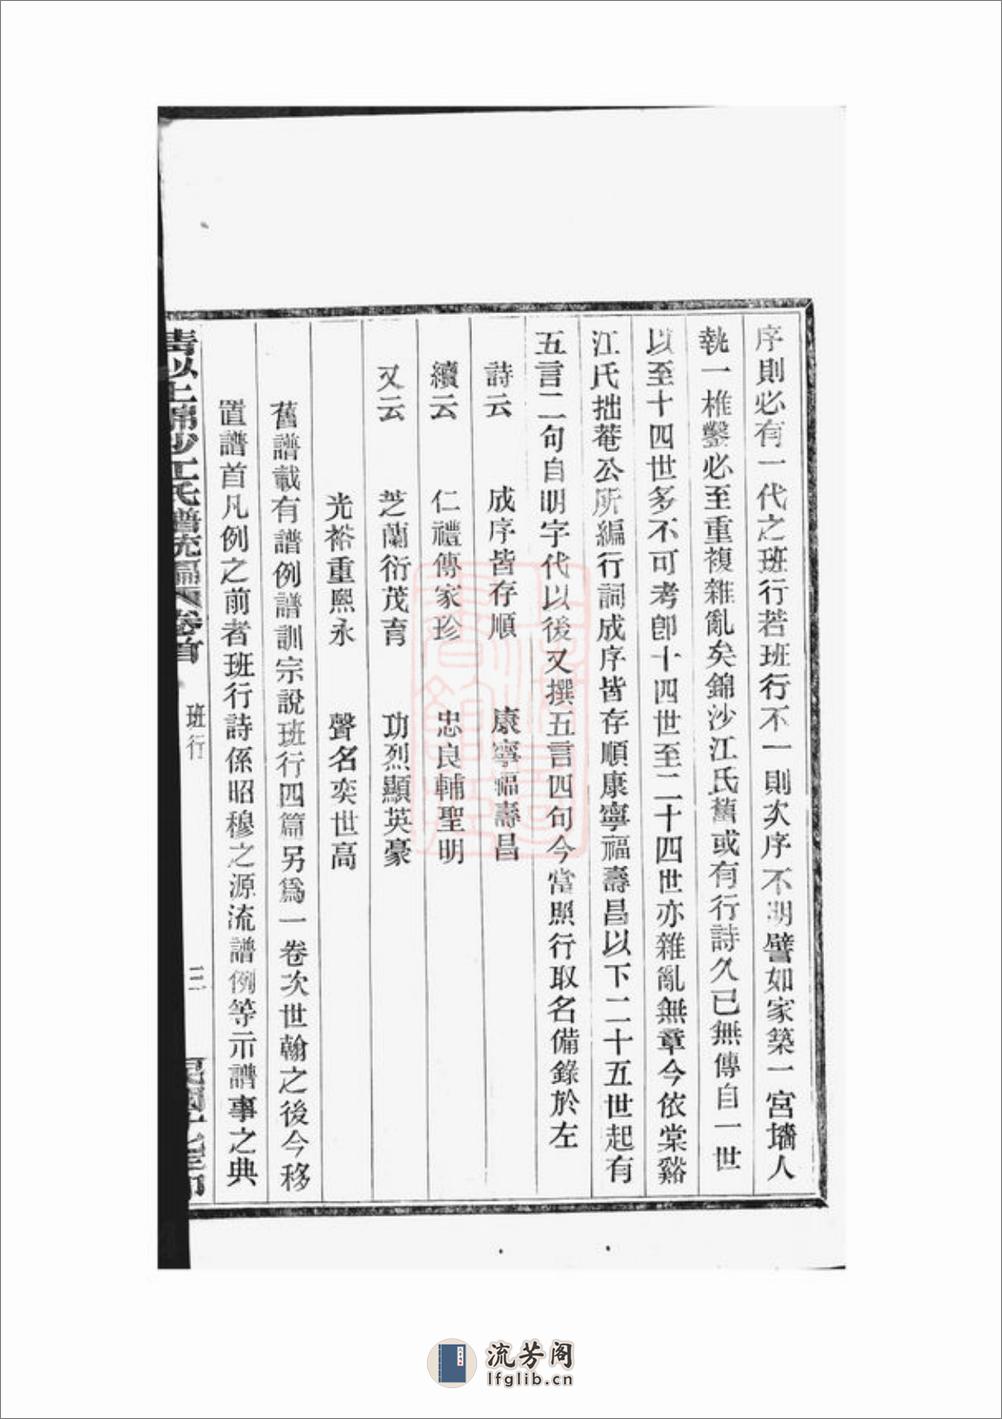 序則必有一代之班行若班行不一則次序不明譬如家築一宮墻人
執一椎鑿必至重複雜亂矣錦沙江氏舊或有行詩久已無傳自一世
以至十四世多不可考卽十四世至二十四世亦雜亂無章今依棠谿
江氏拙菴公所編行詞成序皆存順康寧福壽昌以下二十五世起有
五言二句自明字代以後又撰五言四句今當照行取名備錄於左
詩云 成序皆存順 康寧福壽昌
續云 仁禮傳家珍 忠良輔聖明
又云 芝蘭衍茂育 功烈顯英豪
光裕重熙永 聲名奕世高
舊譜載有譜例譜訓宗說班行四篇另爲一卷次世翰之後今移
置譜首凡例之前者班行詩係昭穆之源流譜例等示譜事之典
上錦沙江氏譜統編 卷首 班行 三
流芳阁
lfglib.cn